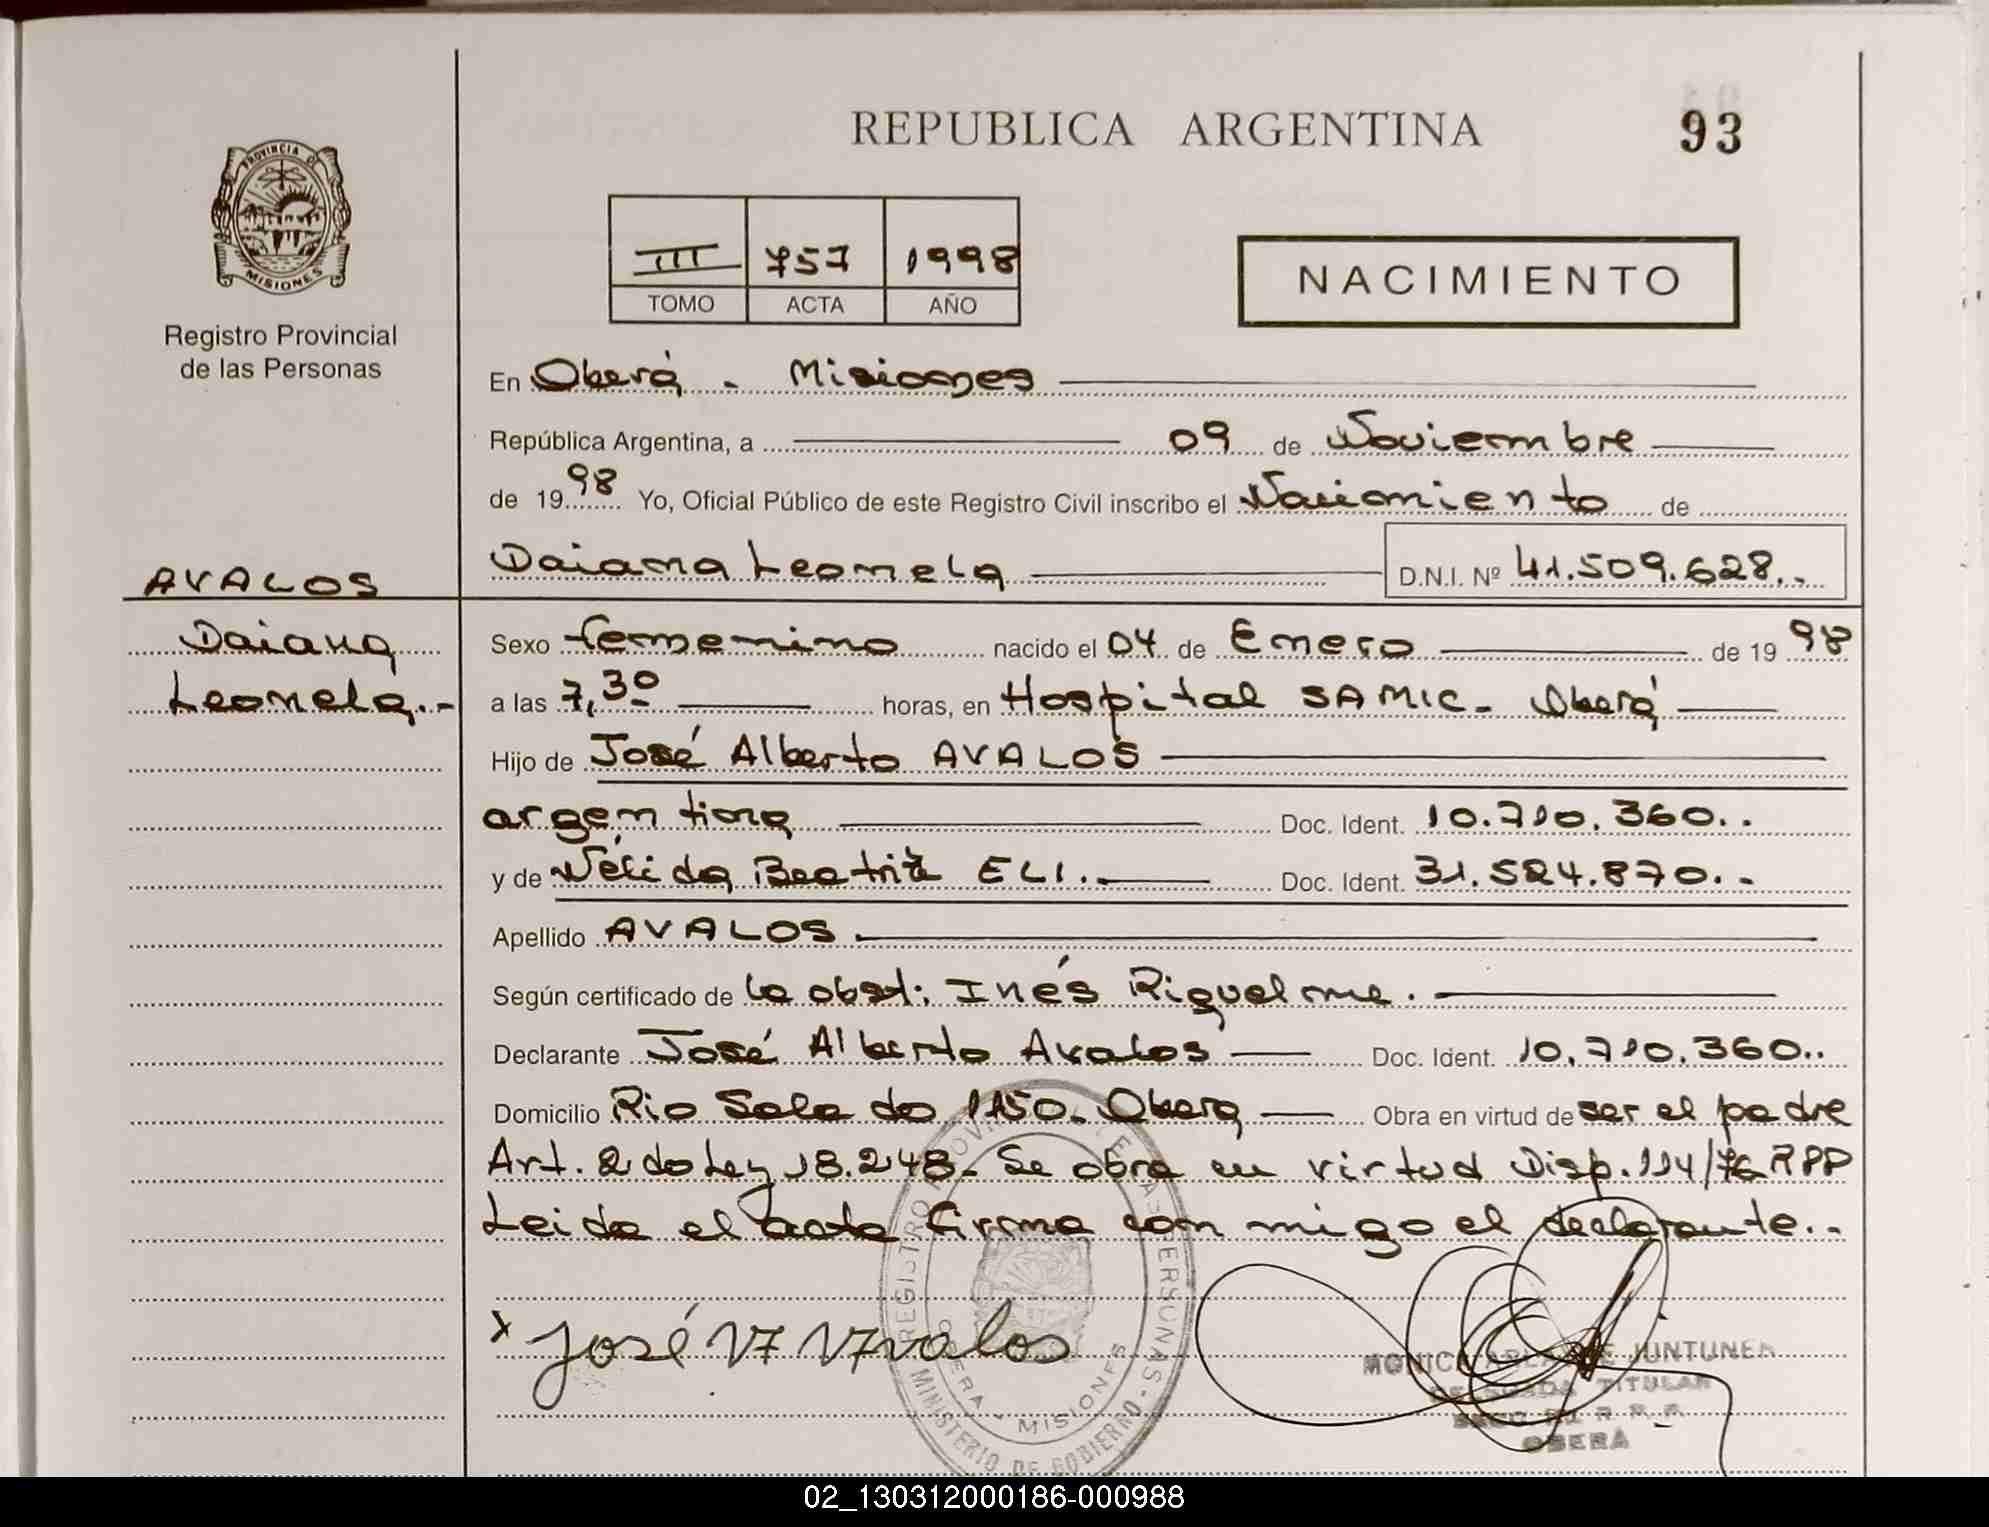 REPUBLICA ARGENTINA
93
PROVINCIA DE
MISIONES
Registro Provincial
de las Personas
III 757 1998
TOMO ACTA AÑO
NACIMIENTO
En Oberá - Misiones
República Argentina, a 09 de Noviembre
de 1998 Yo, Oficial Público de este Registro Civil inscribo el Nacimiento de
Daiana Leonela D.N.I. Nº 41.509.628.-
AVALOS
Daiana
Leonela.-
Sexo femenino nacido el 04 de Enero de 19 98
a las 7,30 horas, en Hospital SAMIC - Oberá
Hijo de José Alberto AVALOS
argentina Doc. Ident. 10.710.360..
y de Nélida Beatriz ELI.- Doc. Ident. 31.524.870.-
Apellido AVALOS
Según certificado de la obst: Inés Riquelme.
Declarante José Alberto Avalos Doc. Ident. 10.710.360..
Domicilio Rio Salado 1150. Oberá Obra en virtud de ser el padre
Art. 2 do Ley 18.248- Se obra en virtud Disp. 114/76 RPP
Leida el acta firma con migo el declarante..
x José A Avalos
REGISTRO PROVINCIAL DE LAS PERSONAS -
MINISTERIO DE GOBIERNO
OBERA - MISIONES
JUNTUNEN
TITULAR
OBERÁ
02_130312000186-000988